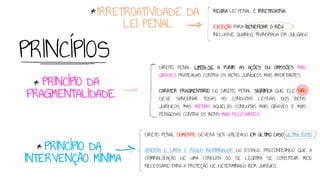 * IRRETROATIVIDADE DA
LEI PENAL
REGRA: LEI PENAL É IRRETROATIVA
EXCEÇÃO: PARA BENEFICIAR O RÉU
INCLUSIVE QUANDO TRANSITADA EM JULGADO
PRINCÍPIOS
* PRINCÍPIO DA
FRAGMENTALIDADE
DIREITO PENAL LIMITA-SE A PUNIR AS AÇÕES OU OMISSÕES MAIS
GRAVES PRATICADAS CONTRA OS BENS JURÍDICOS MAIS IMPORTANTES
CARÁTER FRAGMENTÁRIO DO DIREITO PENAL SIGNIFICA QUE ELE NÃO
DEVE SANCIONAR TODAS AS CONDUTAS LESIVAS DOS BENS
JURÍDICOS, MAS APENAS AQUELAS CONDUTAS MAIS GRAVES E MAIS
PERIGOSAS CONTRA OS BENS MAIS RELEVANTES
* PRINCÍPIO DA
INTERVENÇÃO MÍNIMA
DIREITO PENAL SOMENTE DEVERÁ SER UTILIZADO EM ÚLTIMO CASO (ULTIMA RATIO)
ORIENTA E LIMITA O PODER INCRIMINADOR DO ESTADO, PRECONIZANDO QUE A
CRIMINALIZAÇÃO DE UMA CONDUTA SÓ SE LEGITIMA SE CONSTITUIR MEIO
NECESSÁRIO PARA A PROTEÇÃO DE DETERMINADO BEM JURÍDICO